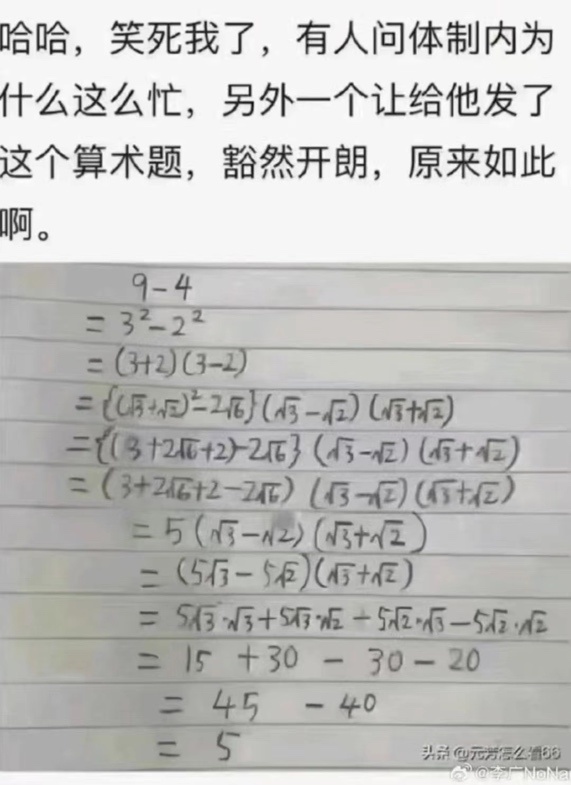 哈哈，笑死我了，有人问体制内为
什么这么忙，另外一个让给他发了
这个算术题，豁然开朗，原来如此
啊。
9-4
= 3²-2²
= (3+2)(3-2)
= {(√3+√2)²-2√6}(√3-√2)(√3+√2)
= {(3+2√6+2)-2√6}(√3-√2)(√3+√2)
= (3+2√6+2-2√6)(√3-√2)(√3+√2)
= 5(√3-√2)(√3+√2)
= (5√3-5√2)(√3+√2)
= 5√3·√3+5√3·√2-5√2·√3-5√2·√2
= 15 +30 - 30 - 20
= 45 - 40
= 5
头条 @元芳怎么看66
@李广NoNa